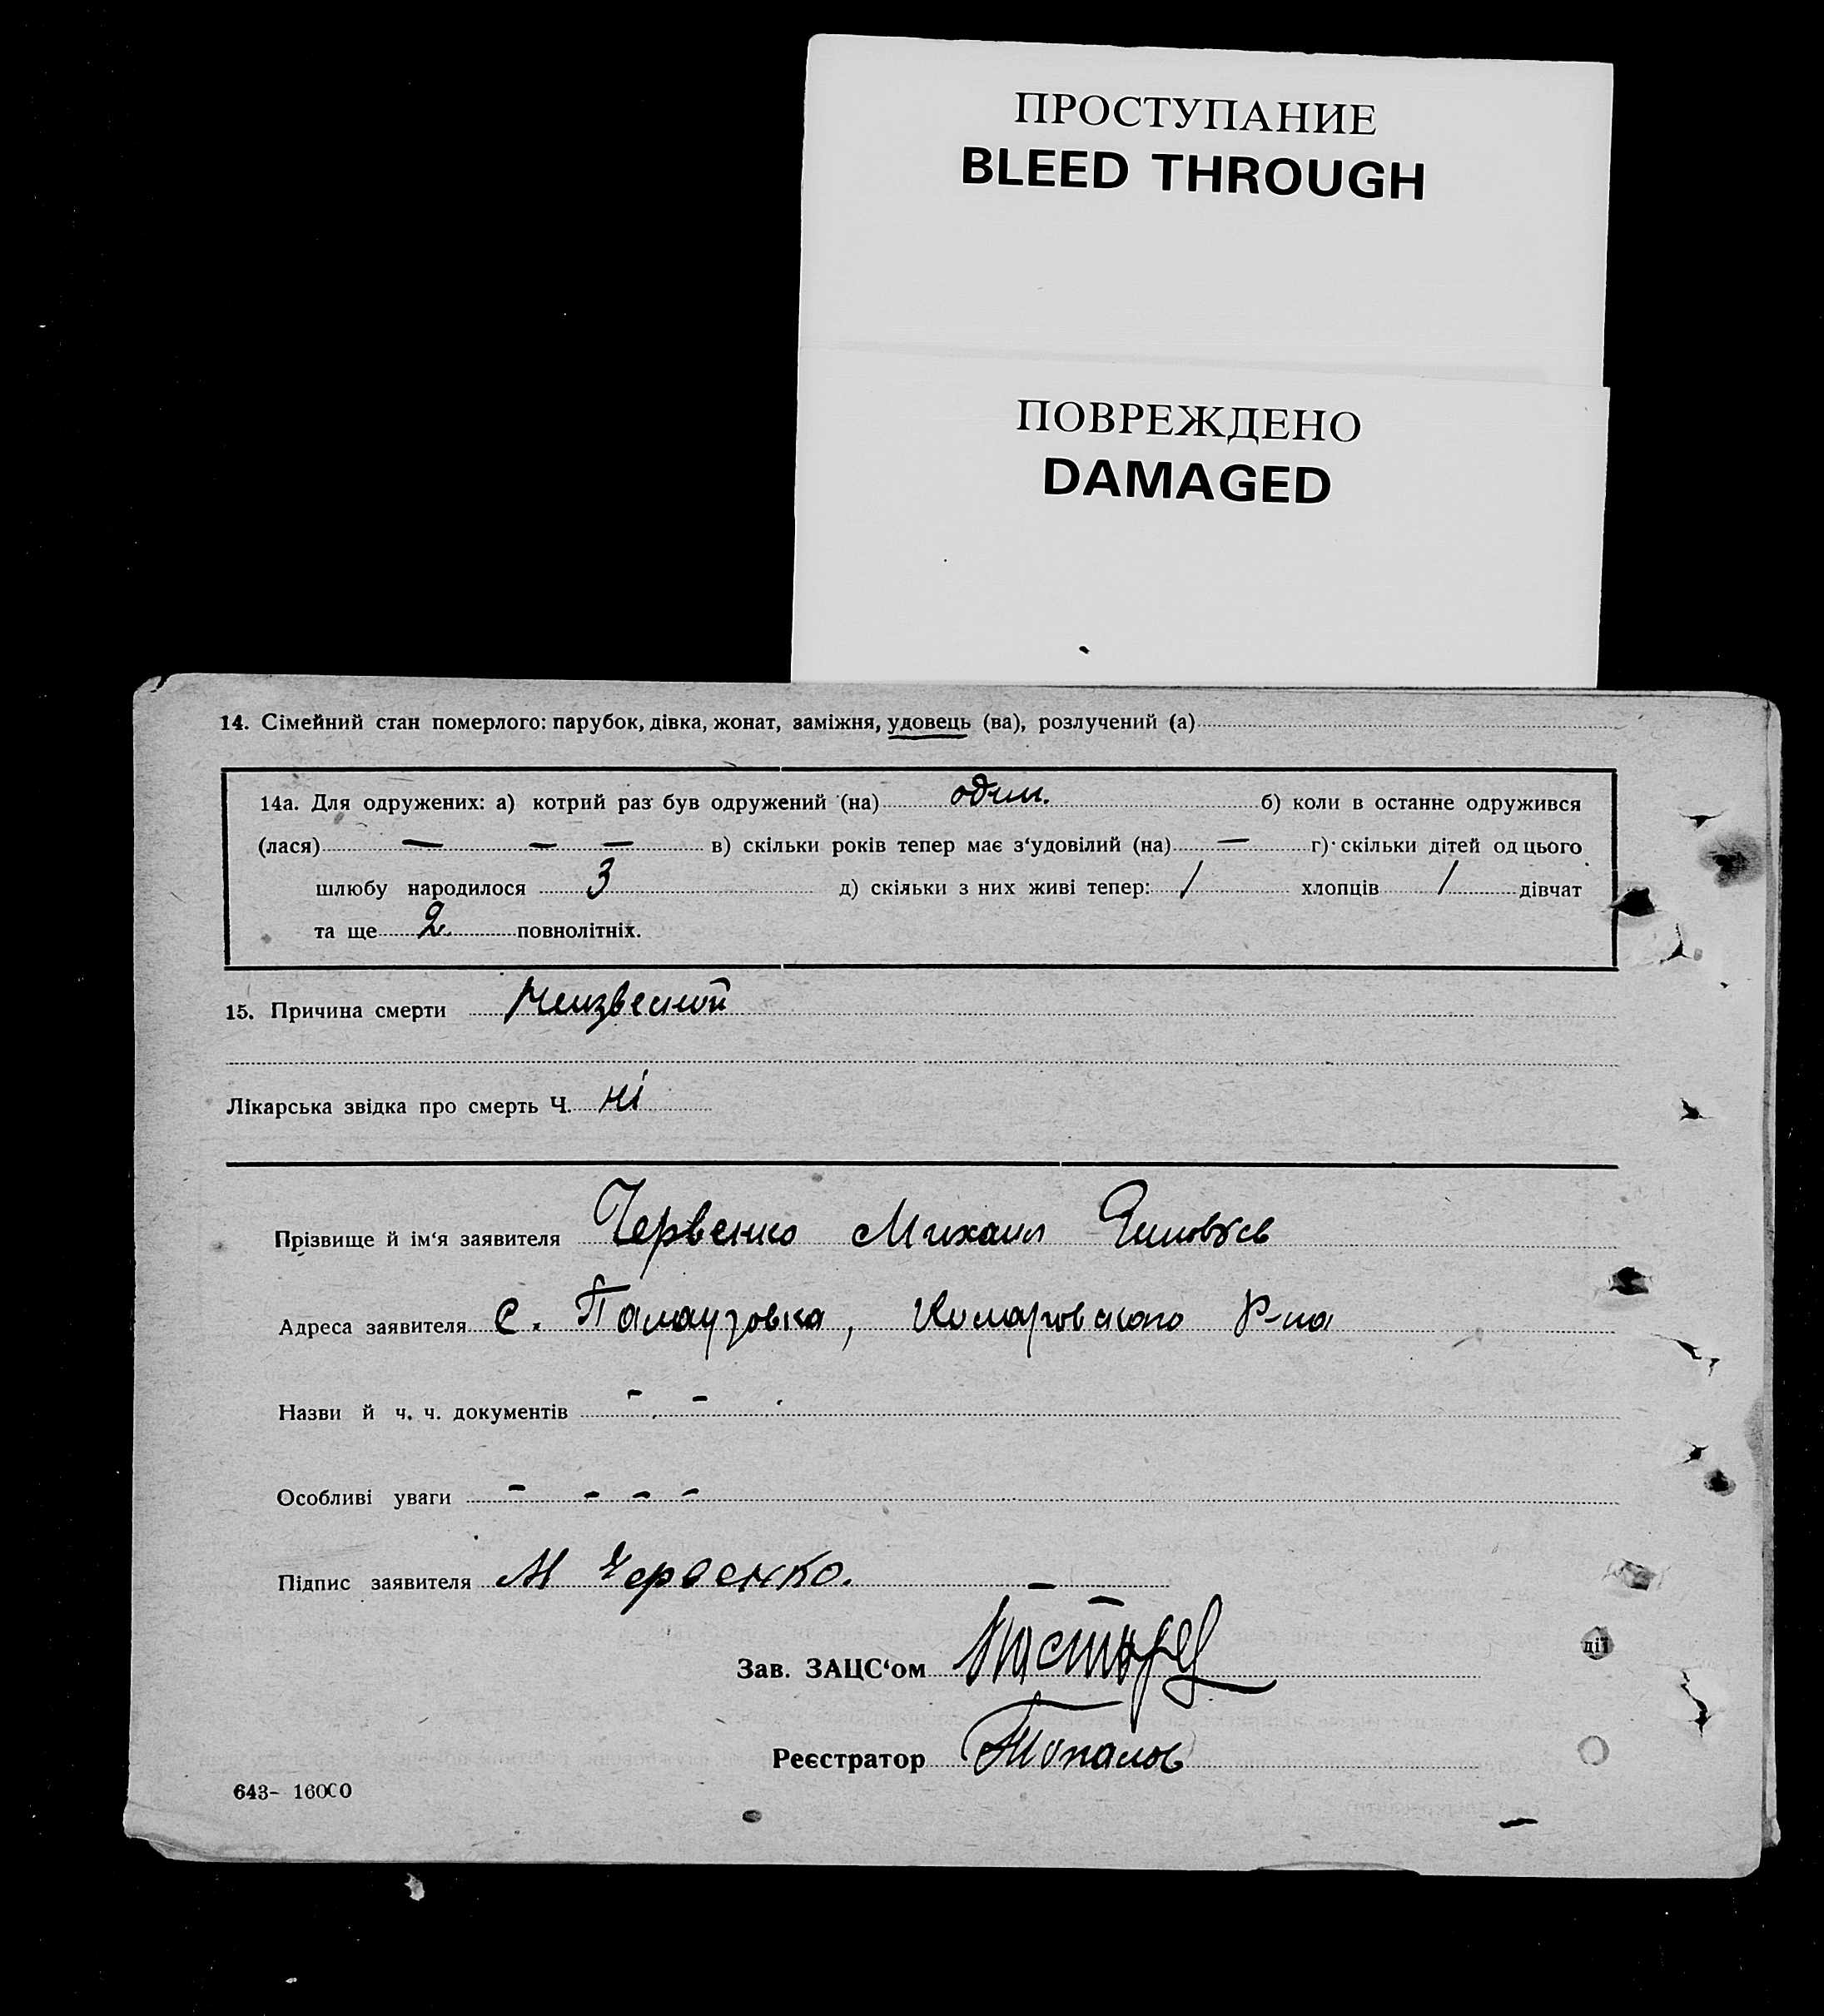 ПРОСТУПАНИЕ
BLEED THROUGH
ПОВРЕЖДЕНО
DAMAGED
14. Сімейний стан померлого: парубок, дівка, жонат, заміжня, удовець (ва), розлучений (а)
14а. Для одружених: а) котрий раз був одружений (на) один. б) коли в останнє одружився
(лася) — — — в) скільки років тепер має з‘удовілий (на) — г) скільки дітей од цього
шлюбу народилося 3 д) скільки з них живі тепер: 1 хлопців 1 дівчат
та ще 2 повнолітніх.
15. Причина смерти
Лікарська звідка про смерть Ч. ні
Прізвище й ім‘я заявителя Червенко Михаил
Адреса заявителя с. Памаузовка, Комаровского Р-на
Назви й ч. ч. документів - -
Особливі уваги - - - -
Підпис заявителя М Червенко. —
Зав. ЗАЦС‘ом
дії
Реєстратор Топалов
643- 16000